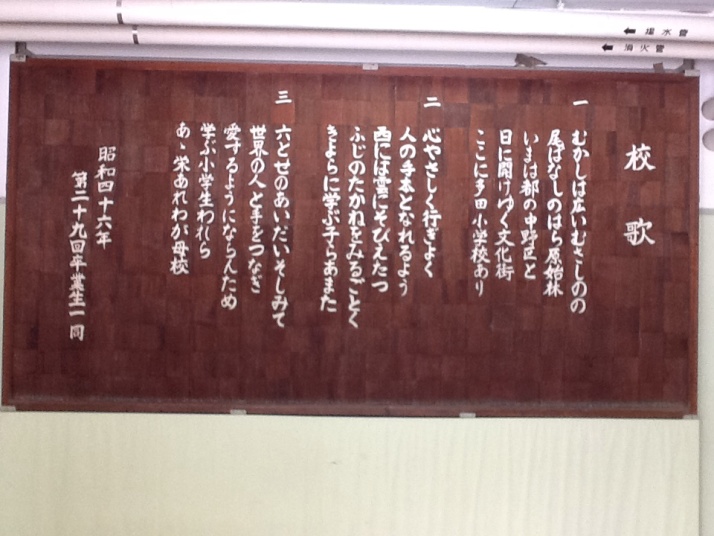 揚水管
消火管
校歌
一
むかしは広いむさしのの
尾ばなしのはら原始林
いまは都の中野区と
日に開けゆく文化街
ここに多田小学校あり
二
心やさしく行きよく
人の手本となれるよう
西には雲にそびえたつ
ふじのたかねをみるごとく
きよらに学ぶ子らあまた
三
六とせのあいだいそしみて
世界の人と手をつなぎ
愛するようにならんため
学ぶ小学生われら
あゝ栄あれわが母校
昭和四十六年
第二十九回卒業生一同